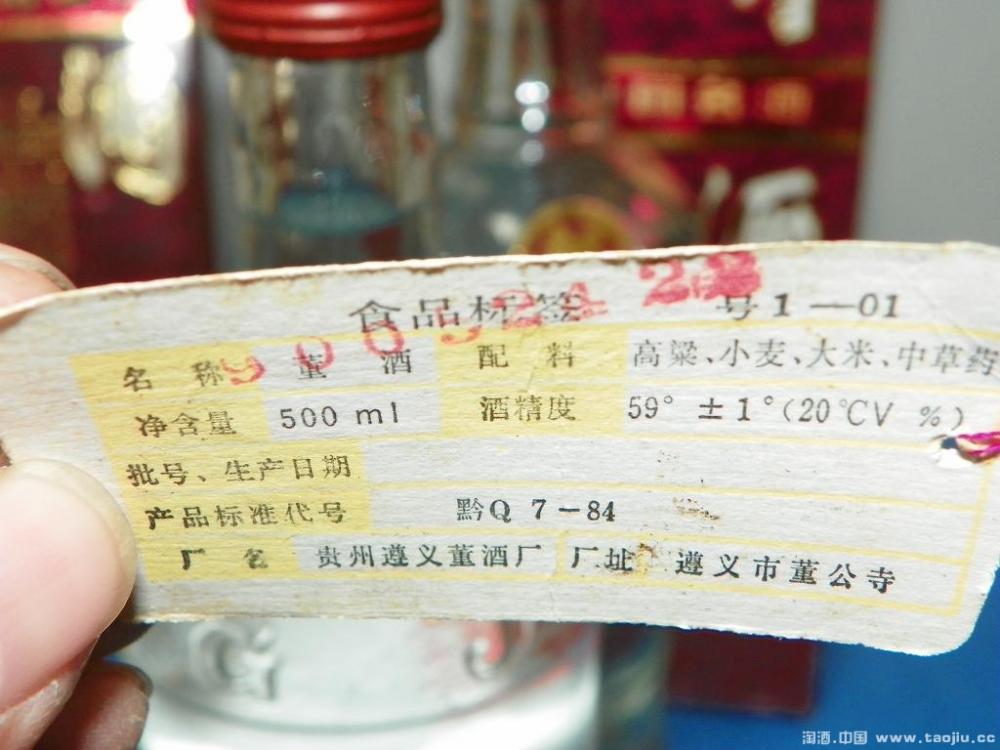 食品标签 号1—01
名 称 董 酒 配 料 高粱、小麦、大米、中草药
净含量 500 ml 酒精度 59° ±1°(20℃V %)
批号、生产日期
产品标准代号 黔Q 7－84
厂 名 贵州遵义董酒厂 厂址 遵义市董公寺
淘酒.中国 www.taojiu.cc